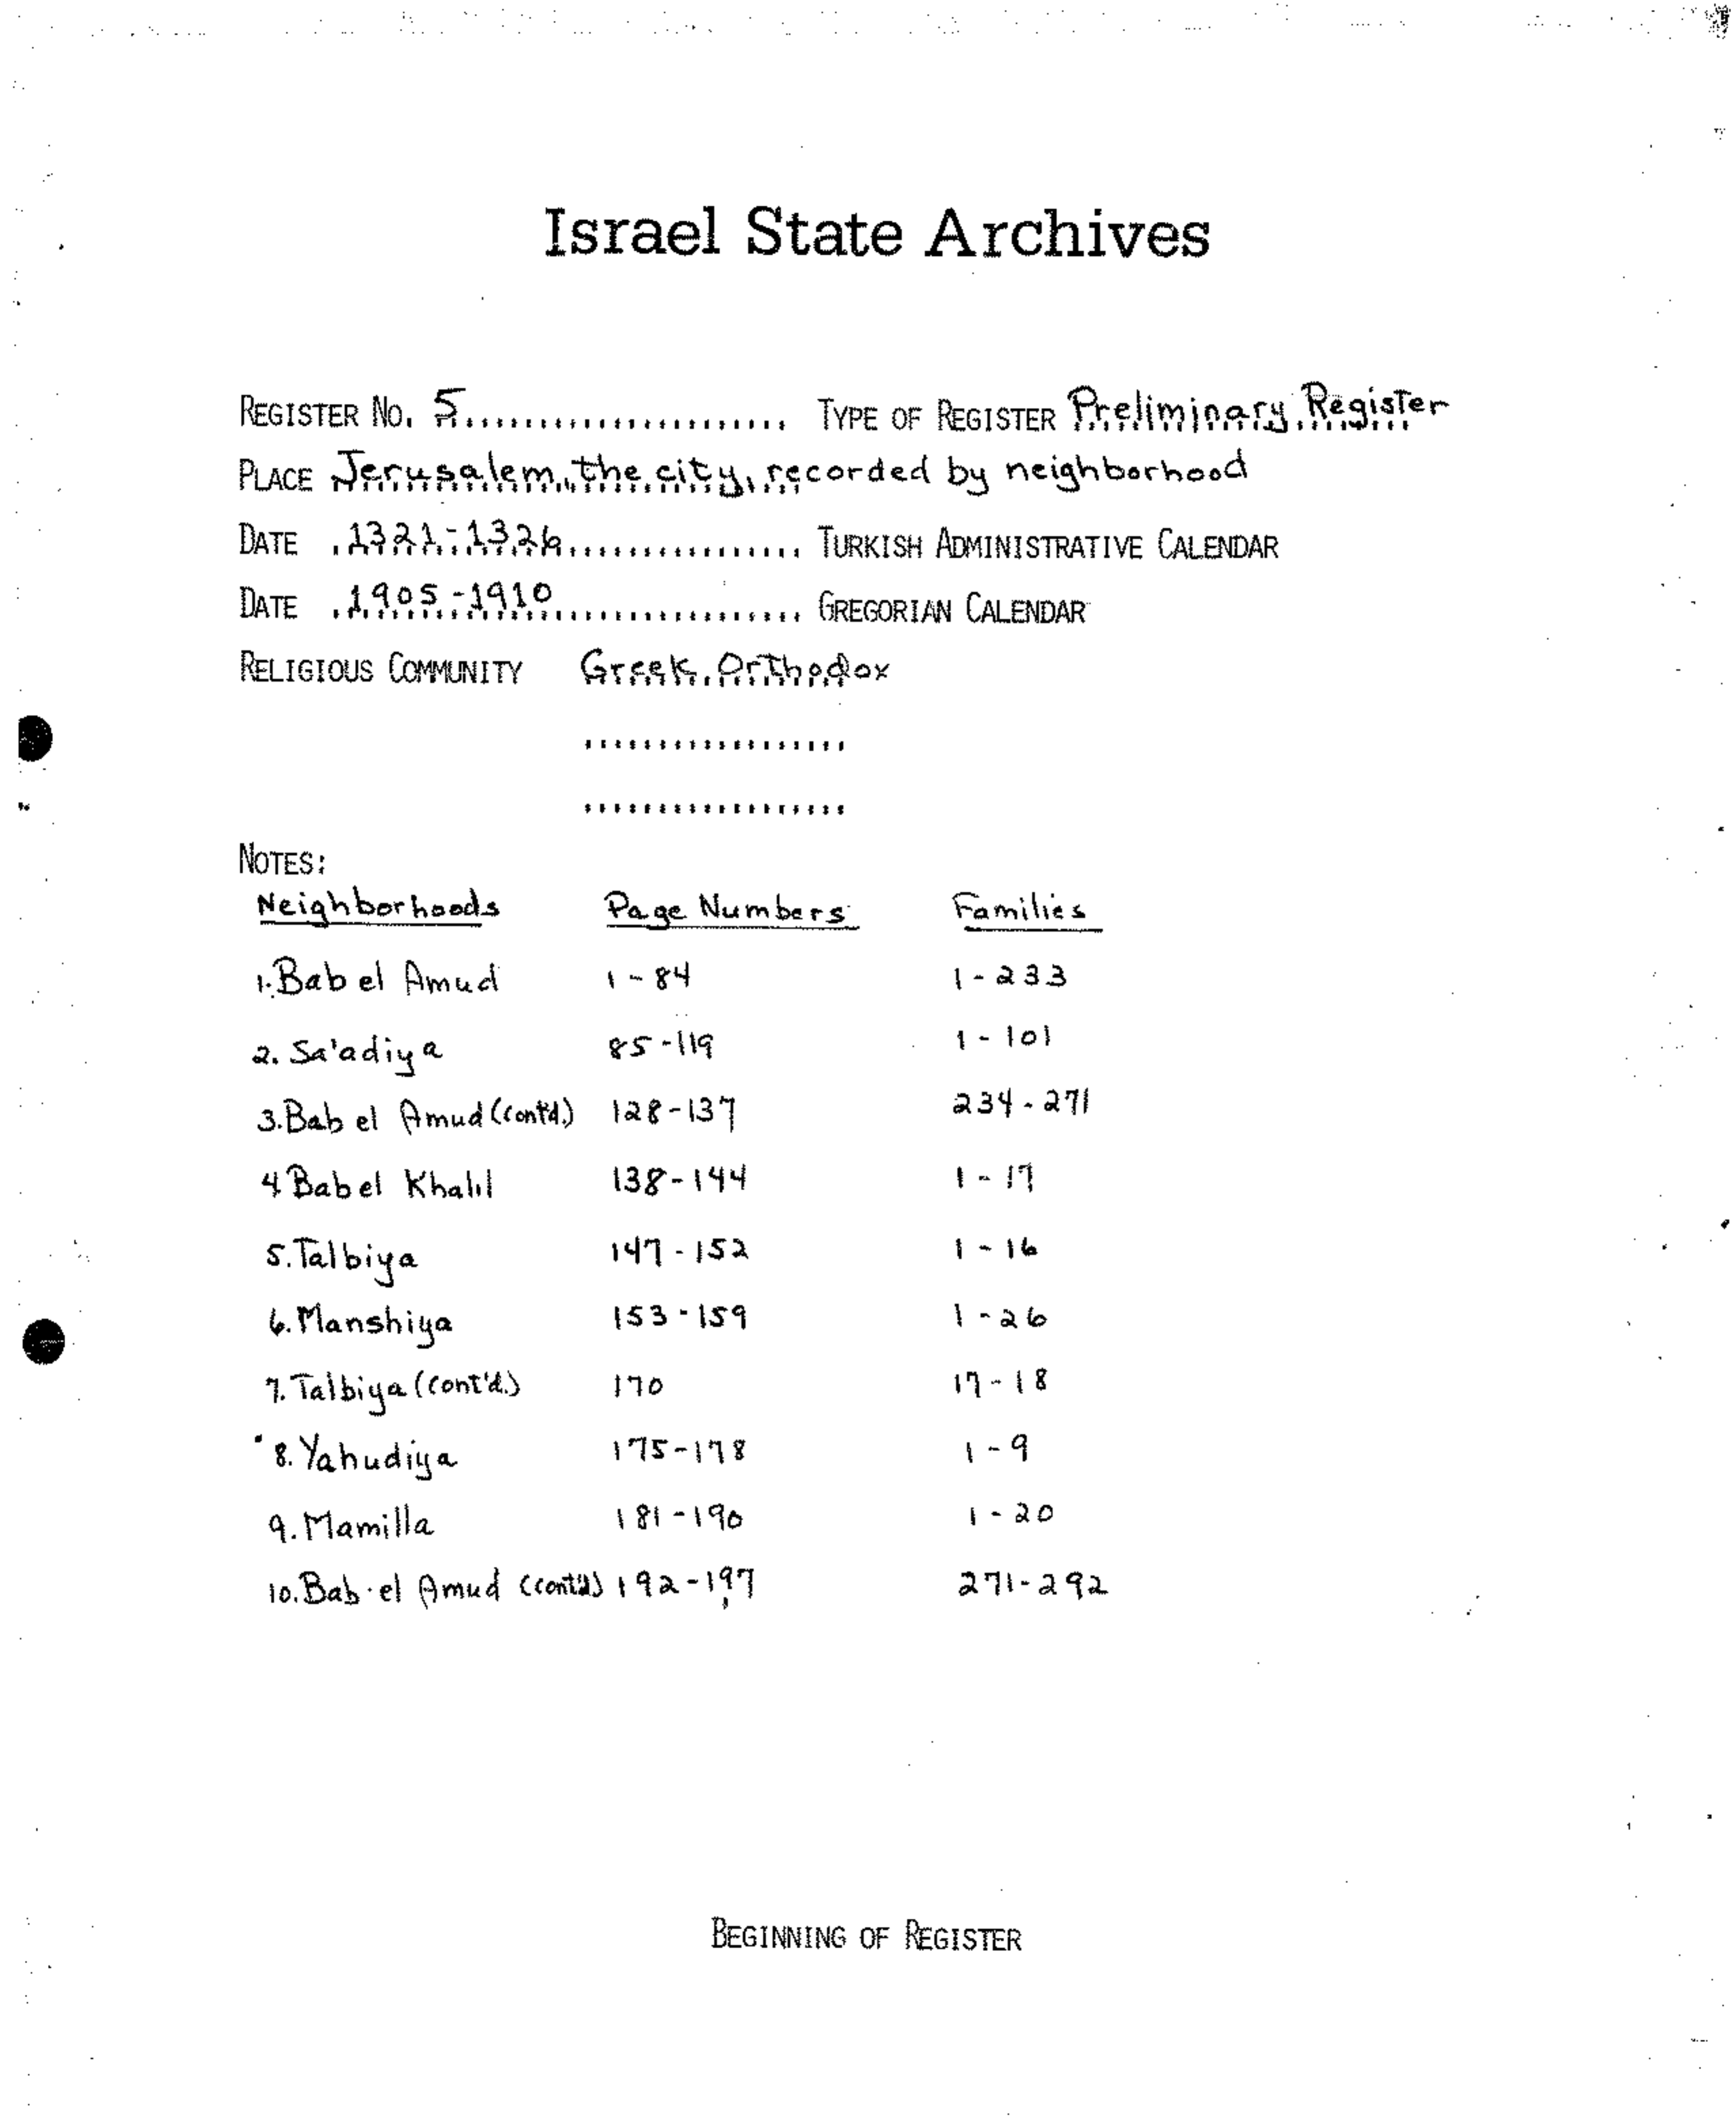 Israel State Archives
REGISTER NO. 5 TYPE OF REGISTER Preliminary Register
PLACE Jerusalem, the city, recorded by neighborhood
DATE 1321-1326 TURKISH ADMINISTRATIVE CALENDAR
DATE 1905-1910 GREGORIAN CALENDAR
RELIGIOUS COMMUNITY Greek Orthodox
NOTES:
Neighborhoods Page Numbers Families
1. Bab el Amud 1-84 1-233
2. Sa'adiya 85-119 1-101
3. Bab el Amud (cont'd.) 128-137 234-271
4. Bab el Khalil 138-144 1-17
5. Talbiya 147-152 1-16
6. Manshiya 153-159 1-26
7. Talbiya (cont'd.) 170 17-18
8. Yahudiya 175-178 1-9
9. Mamilla 181-190 1-20
10. Bab el Amud (cont'd) 192-197 271-292
BEGINNING OF REGISTER